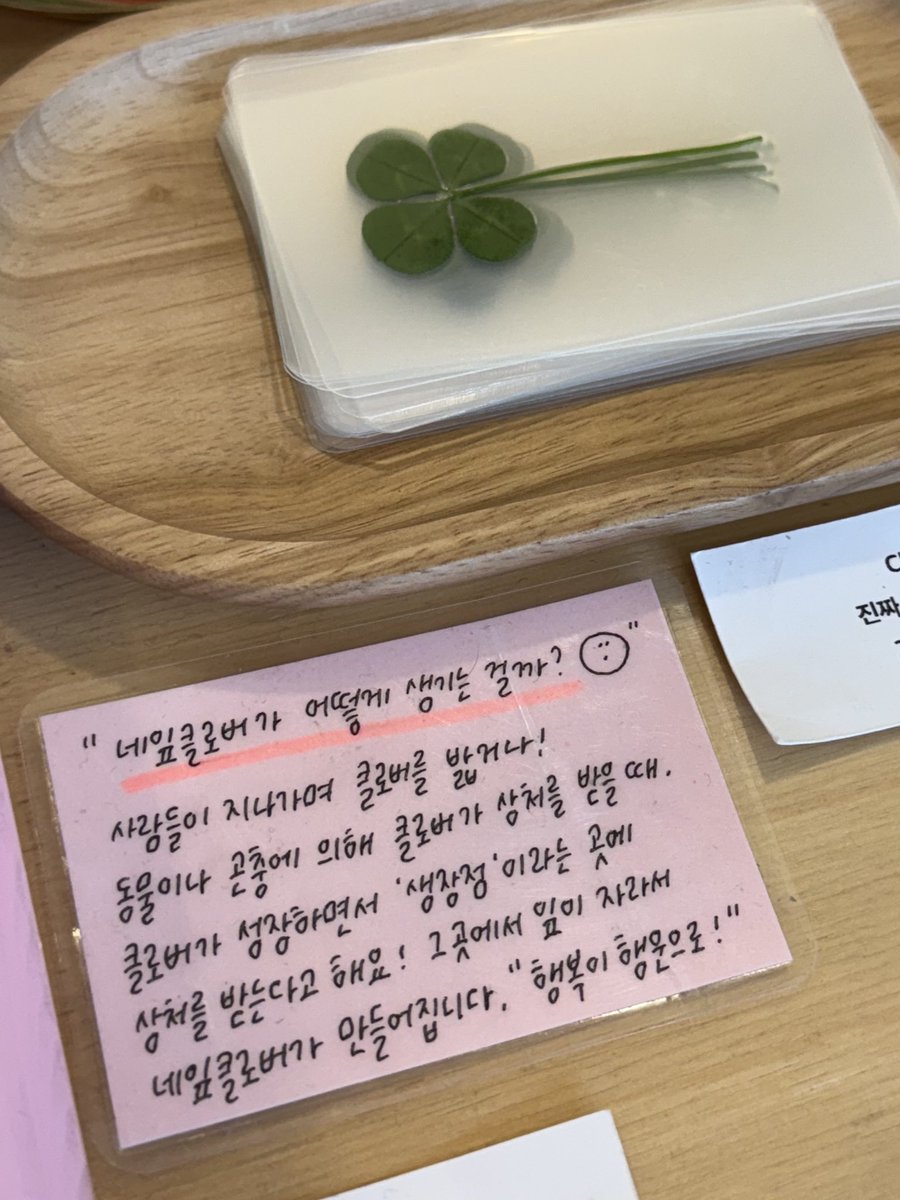 "네잎클로버가 어떻게 생기는 걸까?"
사람들이 지나가며 클로버를 밟거나!
동물이나 곤충에 의해 클로버가 상처를 받을때.
클로버가 성장하면서 '생장점'이라는 곳에
상처를 받는다고 해요! 그곳에서 잎이 자라서
네잎클로버가 만들어집니다. "행복이 행운으로!"
진짜